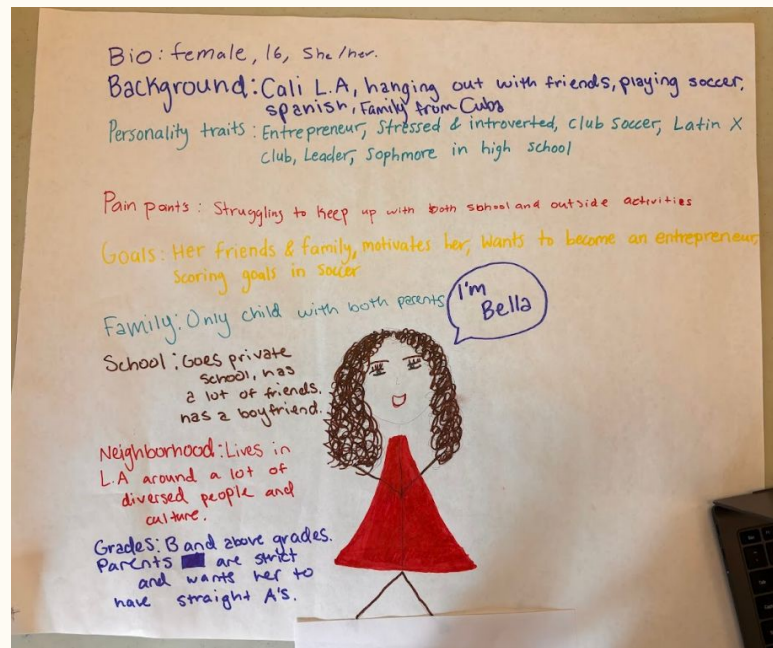 Bio: female, 16, She/her.
Background: Cali L.A, hanging out with friends, playing soccer,
spanish, Family from Cuba
Personality traits: Entrepreneur, Stressed & introverted, Club Soccer, Latin X
club, Leader, Sophmore in high school
Pain points: Struggling to keep up with both school and outside activities
Goals: Her friends & family, motivates her, Wants to become an entrepreneur,
Scoring goals in soccer
Family: Only child with both parents
I'm
Bella
School: Goes private
school, has
a lot of friends.
has a boyfriend.
Neighborhood: Lives in
L.A around a lot of
diversed people and
culture.
Grades: B and above grades.
Parents are strict
and wants her to
have straight A's.